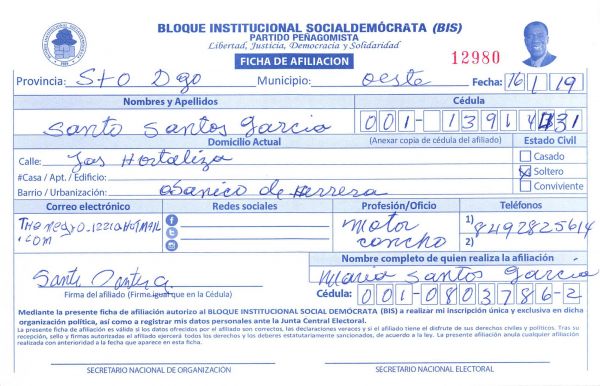 BLOQUE INSTITUCIONAL SOCIALDEMÓCRATA (BIS)
PARTIDO PEÑAGOMISTA
Libertad, Justicia, Democracia y Solidaridad
FICHA DE AFILIACION
12980
Provincia: Sto Dgo Municipio: oeste Fecha: 16/1/19
Nombres y Apellidos Cédula
Santo Santos Garcia 001-1391
Domicilio Actual (Anexar copia de cédula del afiliado) Estado Civil
Calle: Las Hortaliza Casado
#Casa / Apt. / Edificio: Soltero
Barrio / Urbanización: Manoguayabo de Herrera Conviviente
Correo electrónico Redes sociales Profesión/Oficio Teléfonos
Motor 1) 8492825614
.com concho 2)
Nombre completo de quien realiza la afiliación
Maria Santos Garcia
Firma del afiliado (Firme igual que en la Cédula) Cédula: 001-0803786-2
Mediante la presente ficha de afiliación autorizo al BLOQUE INSTITUCIONAL SOCIAL DEMÓCRATA (BIS) a realizar mi inscripción única y exclusiva en dicha
organización política, así como a registrar mis datos personales ante la Junta Central Electoral.
La presente ficha de afiliación es válida si los datos ofrecidos por el afiliado son correctos, las declaraciones veraces y si el afiliado tiene el disfrute de sus derechos civiles y políticos. Tras su
recepción, sello y firmas autorizadas el afiliado ejercerá todos los derechos y los deberes estatutariamente sancionados, de acuerdo a la ley. La presente afiliación anula cualquier afiliación
realizada con anterioridad a la fecha que aparece en esta ficha.
SECRETARIO NACIONAL DE ORGANIZACIÓN SECRETARIO NACIONAL ELECTORAL